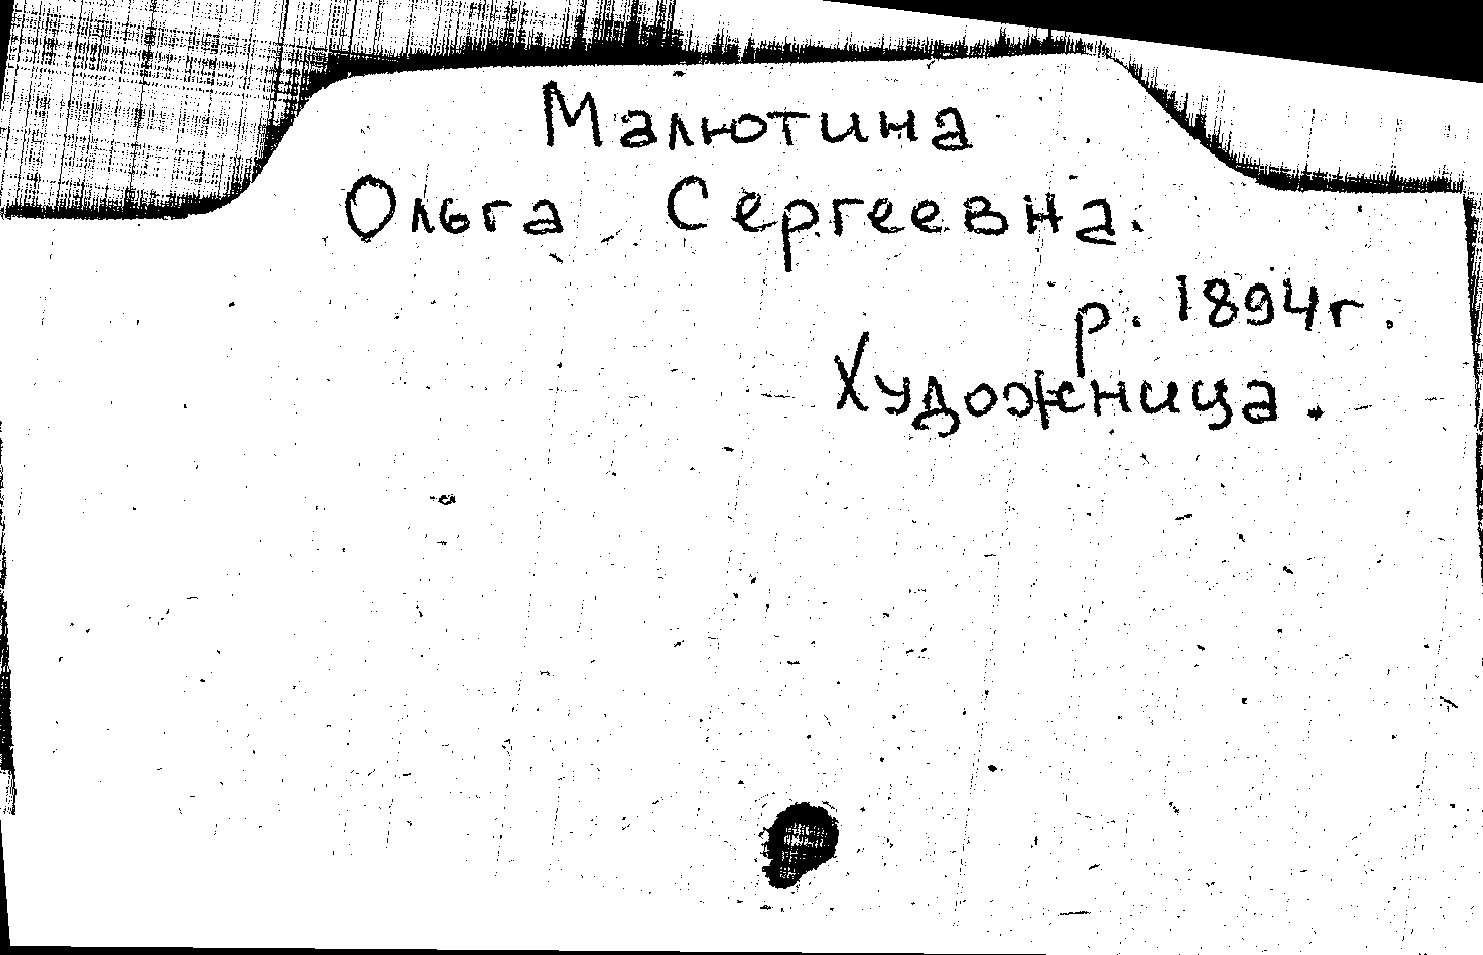 Малютина
Ольга Сергеевна.
р. 1894г.
Художница.